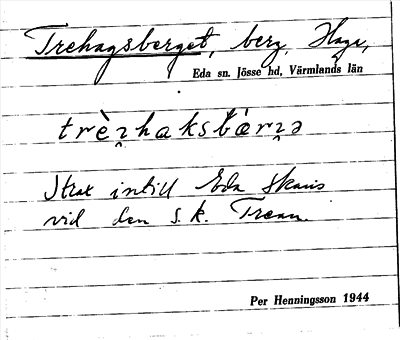 Trehagsberget, berg, Haga,
Eda sn. Jösse hd, Värmlands län
Strax intill Eda skans
vid den s.k. Trean.
Per Henningsson 1944